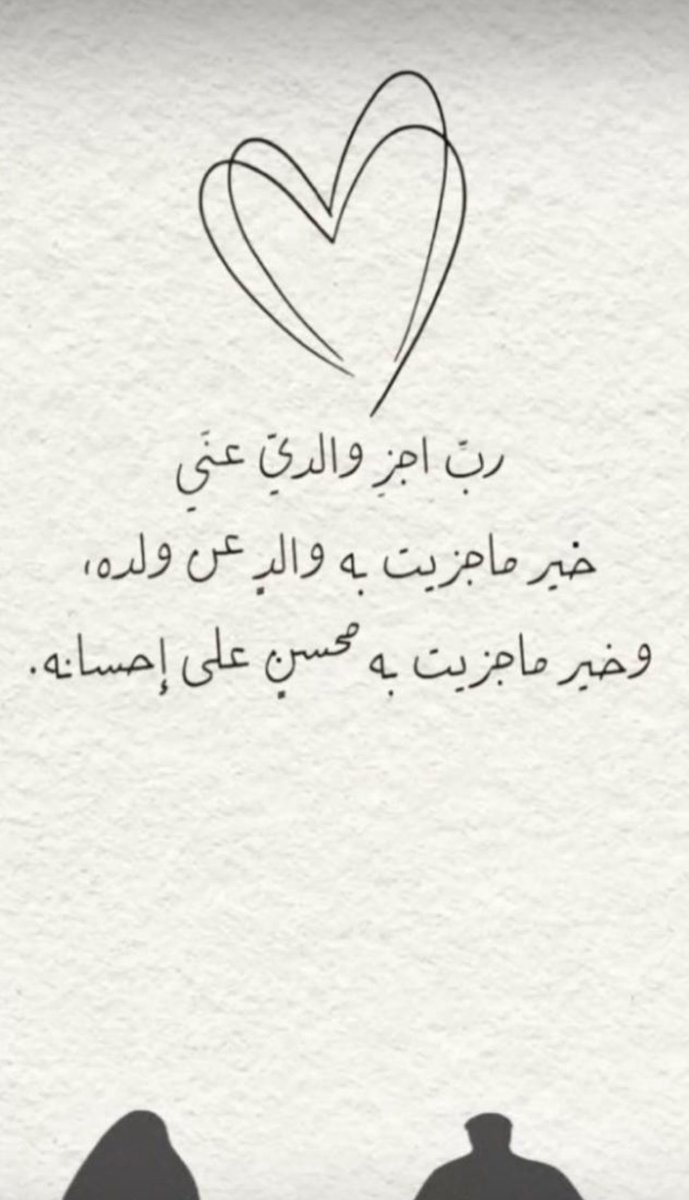 ربّ اجزِ والديّ عنَي
خير ماجزيت به والدٍ عن ولده،
وخير ماجزيت به محسنٍ على إحسانه.